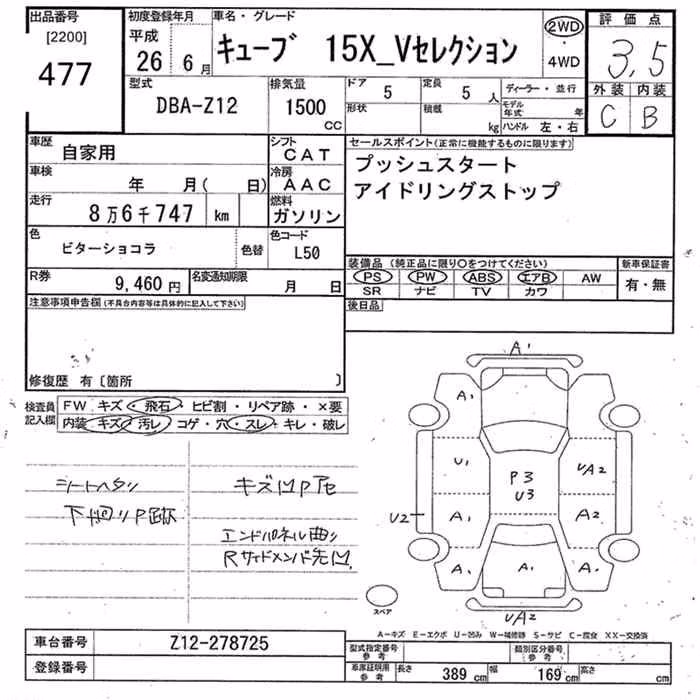 出品番号
[2200]
477
初度登録年月
平成
26 6月
車名・グレード
キューブ 15X_Vセレクション
2WD
・
4WD
評価点
3,5
外装 内装
C B
型式
DBA-Z12
排気量
1500
CC
ドア 5
形状
定員 5 人
積載 kg
ディーラー・並行
モデル年式 年
ハンドル 左・右
車歴 自家用
シフト
CAT
車検 年 月( 日)
冷房
AAC
走行 8万6千747 km
燃料
ガソリン
色 ビターショコラ 色替
色コード
L50
R券 9,460円
名変通知期限 月 日
セールスポイント(正常に機能するものに限ります)
プッシュスタート
アイドリングストップ
装備品 (純正品に限り○をつけてください)
PS PW ABS エアB AW
SR ナビ TV カワ
新車保証書
有・無
後日品
注意事項申告欄(不具合内容等は具体的に記入して下さい)
修復歴 有〔箇所 〕
検査員
記入欄
FW キズ・飛石・ヒビ割・リペア跡・×要
内装 キズ・汚レ・コゲ・穴・スレ・キレ・破レ
シートヘタリ
下廻りP跡
キズ凹P有
エンドパネル曲り
Rサイドメンバ先凹
A1
A1
U1
P3
U3
UA2
U2
A1
A2
A1
A1
A1
UA2
スペア
A-キズ E-エクボ U-凹み W-補修跡 S-サビ C-腐食 XX-交換済
車台番号 Z12-278725
登録番号
型式指定番号
参考
類別区分番号
参考
車庫証明用
参考
長さ 389 cm 幅 169 cm 高さ cm